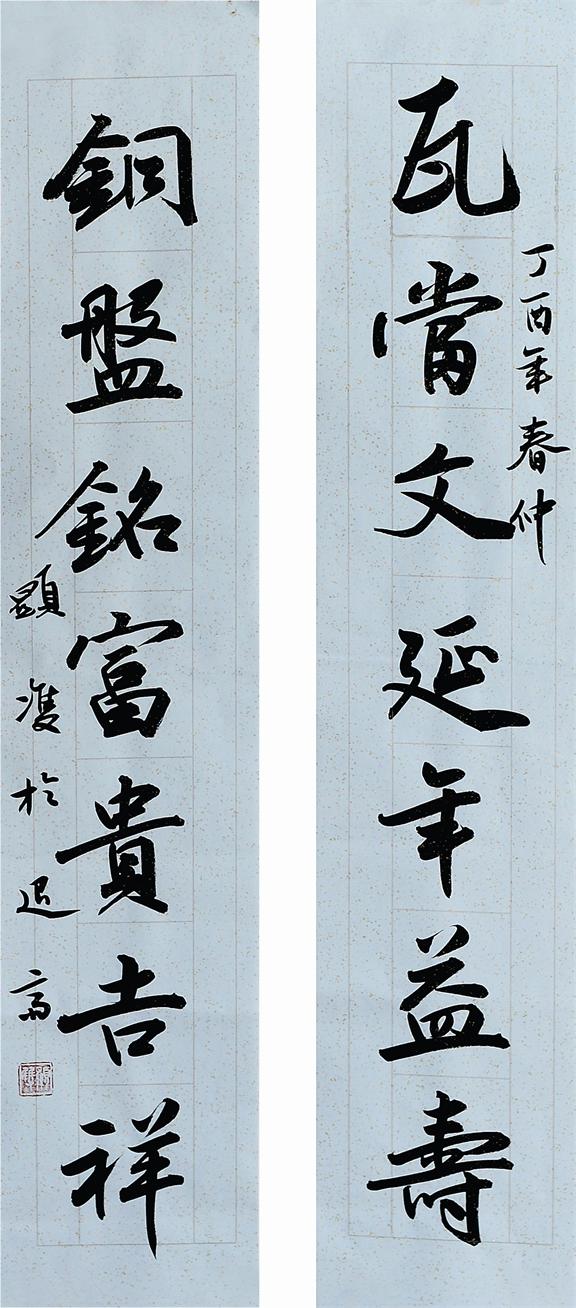 丁酉年春仲
瓦當文延年益壽
銅盤銘富貴吉祥
顯於退齋